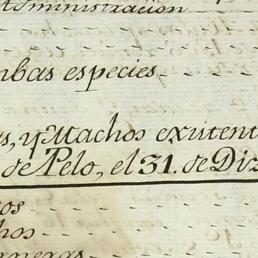 Administracion
mbas especies
s, y Machos existent
de Pelo, el 31. de Diz
os
hos